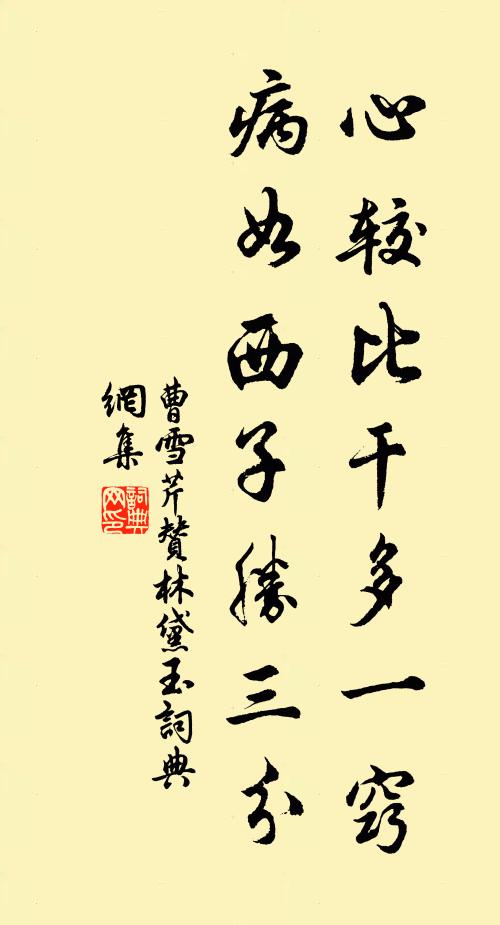 心较比干多一窍
病如西子勝三分
曹雪芹贊林黛玉詞典
網集
詞典
网印